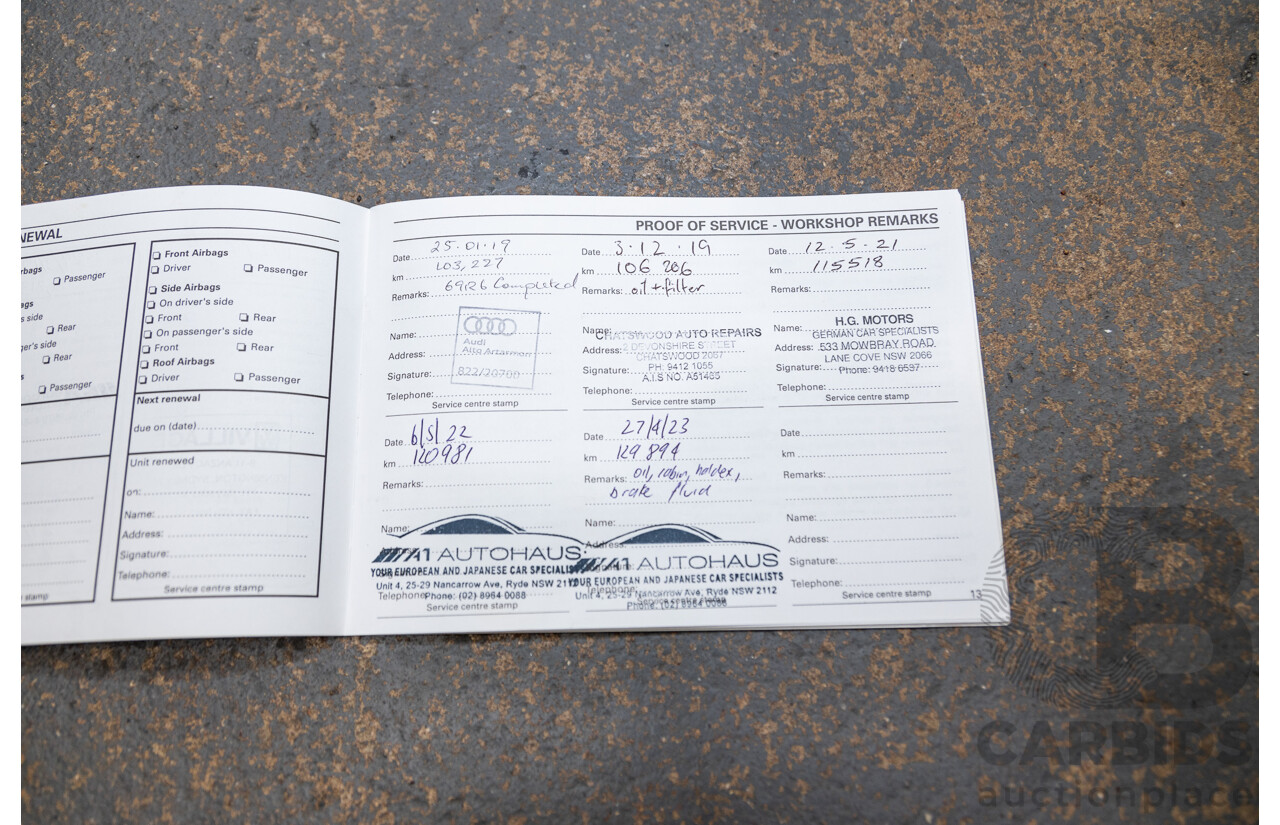 NEWAL
Passenger
Rear
Rear
Passenger
Front Airbags
Driver Passenger
Side Airbags
On driver's side
Front Rear
On passenger's side
Front Rear
Roof Airbags
Driver Passenger
Next renewal
due on (date)
Unit renewed
on:
Name:
Address:
Signature:
Telephone:
Service centre stamp
PROOF OF SERVICE - WORKSHOP REMARKS
Date 25.01.19
km 103,227
Remarks: 69R6 Completed
Name:
Audi
Address: Alto Artarmon
Signature: 822/20700
Telephone:
Service centre stamp
Date 3.12.19
km 106 206
Remarks: oil + filter
Name: CHATSWOOD AUTO REPAIRS
Address: DEVONSHIRE STREET
CHATSWOOD 2067
Signature: PH: 9412 1055
A.I.S NO. A51465
Telephone:
Service centre stamp
Date 12.5.21
km 115518
Remarks:
Name: H.G. MOTORS
GERMAN CAR SPECIALISTS
Address: 533 MOWBRAY ROAD.
LANE COVE NSW 2066
Signature: Phone: 9418 6537
Telephone:
Service centre stamp
Date 6/5/22
km 120981
Remarks:
Name:
A1 AUTOHAUS
YOUR EUROPEAN AND JAPANESE CAR SPECIALISTS
Unit 4, 25-29 Nancarrow Ave, Ryde NSW 2112
Telephone: Phone: (02) 8964 0088
Service centre stamp
Date 27/4/23
km 129 894
Remarks: oil, cabin, haldex,
brake fluid
Name:
Address:
A1 AUTOHAUS
YOUR EUROPEAN AND JAPANESE CAR SPECIALISTS
Telephone:
Unit 4, 25-29 Nancarrow Ave, Ryde NSW 2112
Service centre stamp
Phone: (02) 8964 0088
Date
km
Remarks:
Name:
Address:
Signature:
Telephone:
Service centre stamp
13
CARBIDS
auctionplace